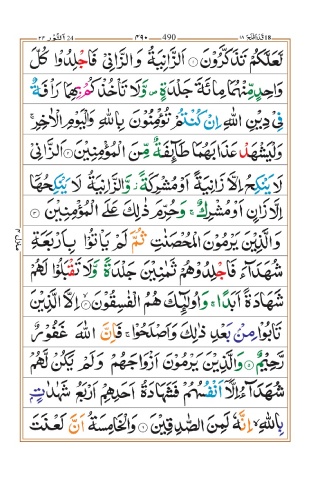 قد افلح ١٨ 490 ٤٩٠ النور ٢٤
لَعَلَّكُمْ تَذَكَّرُوْنَ ۝ اَلزَّانِيَةُ وَالزَّانِيْ فَاجْلِدُوْا كُلَّ
وَاحِدٍ مِّنْهُمَا مِائَةَ جَلْدَةٍ ۪ وَّلَا تَاْخُذْكُمْ بِهِمَا رَاْفَةٌ
فِيْ دِيْنِ اللّٰهِ اِنْ كُنْتُمْ تُؤْمِنُوْنَ بِاللّٰهِ وَالْيَوْمِ الْاٰخِرِ ۚ
وَلْيَشْهَدْ عَذَابَهُمَا طَآئِفَةٌ مِّنَ الْمُؤْمِنِيْنَ ۝ اَلزَّانِيْ
لَا يَنْكِحُ اِلَّا زَانِيَةً اَوْ مُشْرِكَةً ۫ وَّالزَّانِيَةُ لَا يَنْكِحُهَاۤ
اِلَّا زَانٍ اَوْ مُشْرِكٌ ۚ وَحُرِّمَ ذٰلِكَ عَلَى الْمُؤْمِنِيْنَ ۝
وَالَّذِيْنَ يَرْمُوْنَ الْمُحْصَنٰتِ ثُمَّ لَمْ يَاْتُوْا بِاَرْبَعَةِ
شُهَدَآءَ فَاجْلِدُوْهُمْ ثَمٰنِيْنَ جَلْدَةً وَّلَا تَقْبَلُوْا لَهُمْ
شَهَادَةً اَبَدًا ۚ وَاُولٰٓئِكَ هُمُ الْفٰسِقُوْنَ ۝ اِلَّا الَّذِيْنَ
تَابُوْا مِنْۢ بَعْدِ ذٰلِكَ وَاَصْلَحُوْا ۚ فَاِنَّ اللّٰهَ غَفُوْرٌ
رَّحِيْمٌ ۝ وَالَّذِيْنَ يَرْمُوْنَ اَزْوَاجَهُمْ وَلَمْ يَكُنْ لَّهُمْ
شُهَدَآءُ اِلَّاۤ اَنْفُسُهُمْ فَشَهَادَةُ اَحَدِهِمْ اَرْبَعُ شَهٰدٰتٍۭ
بِاللّٰهِ ۙ اِنَّهٗ لَمِنَ الصّٰدِقِيْنَ ۝ وَالْخَامِسَةُ اَنَّ لَعْنَتَ